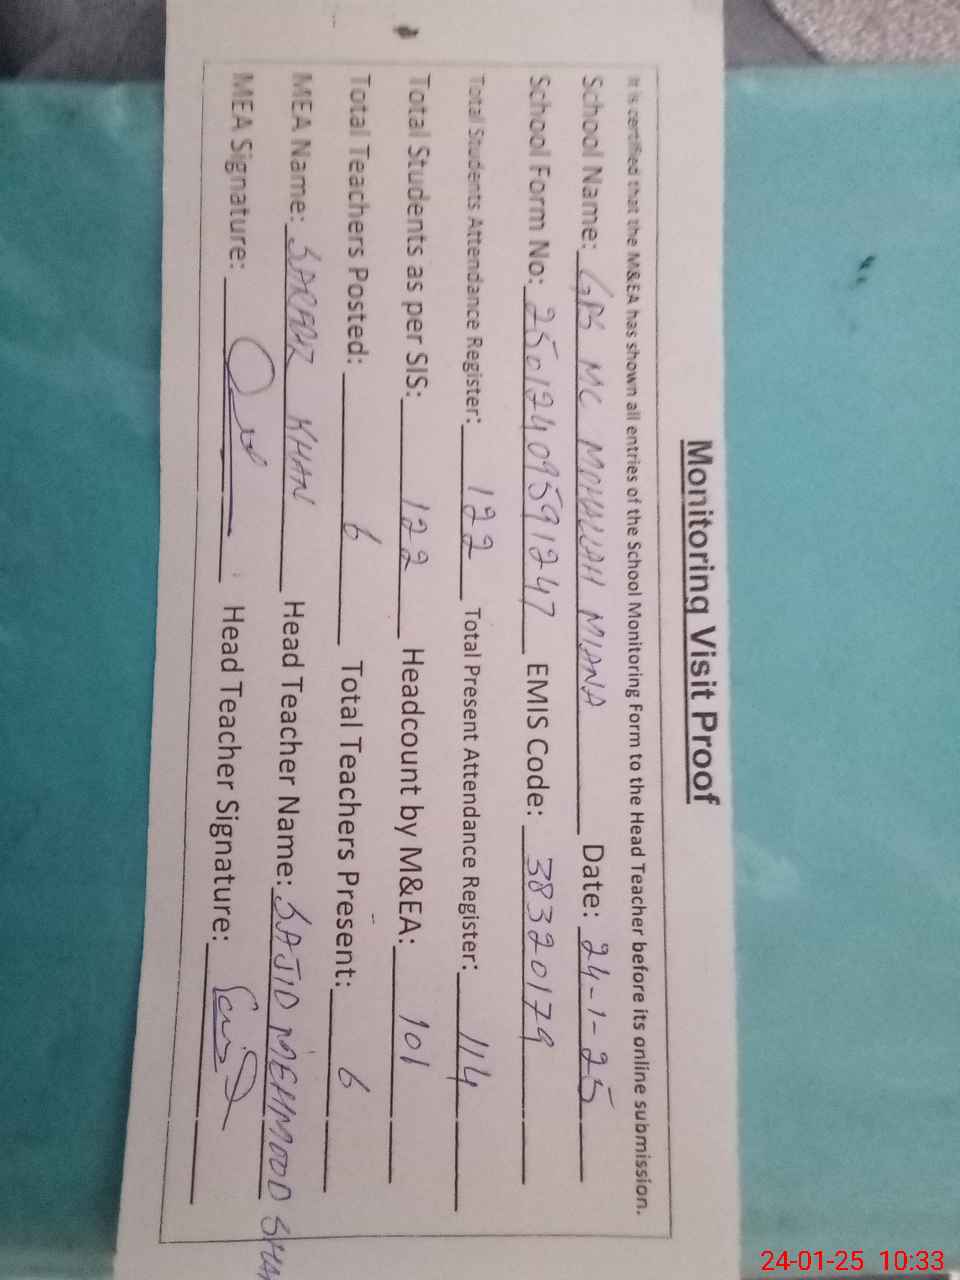 Monitoring Visit Proof
It is certified that the M&EA has shown all entries of the School Monitoring Form to the Head Teacher before its online submission.
School Name: GPS MC MOHALLAH MIANA Date: 24-1-25
School Form No: 25012409591247 EMIS Code: 38320179
Total Students Attendance Register: 122 Total Present Attendance Register: 114
Total Students as per SIS: 122 Headcount by M&EA: 101
Total Teachers Posted: 6 Total Teachers Present: 6
MEA Name: KHAN Head Teacher Name: SAJID MEHMOOD
MEA Signature: Head Teacher Signature:
24-01-25 10:33